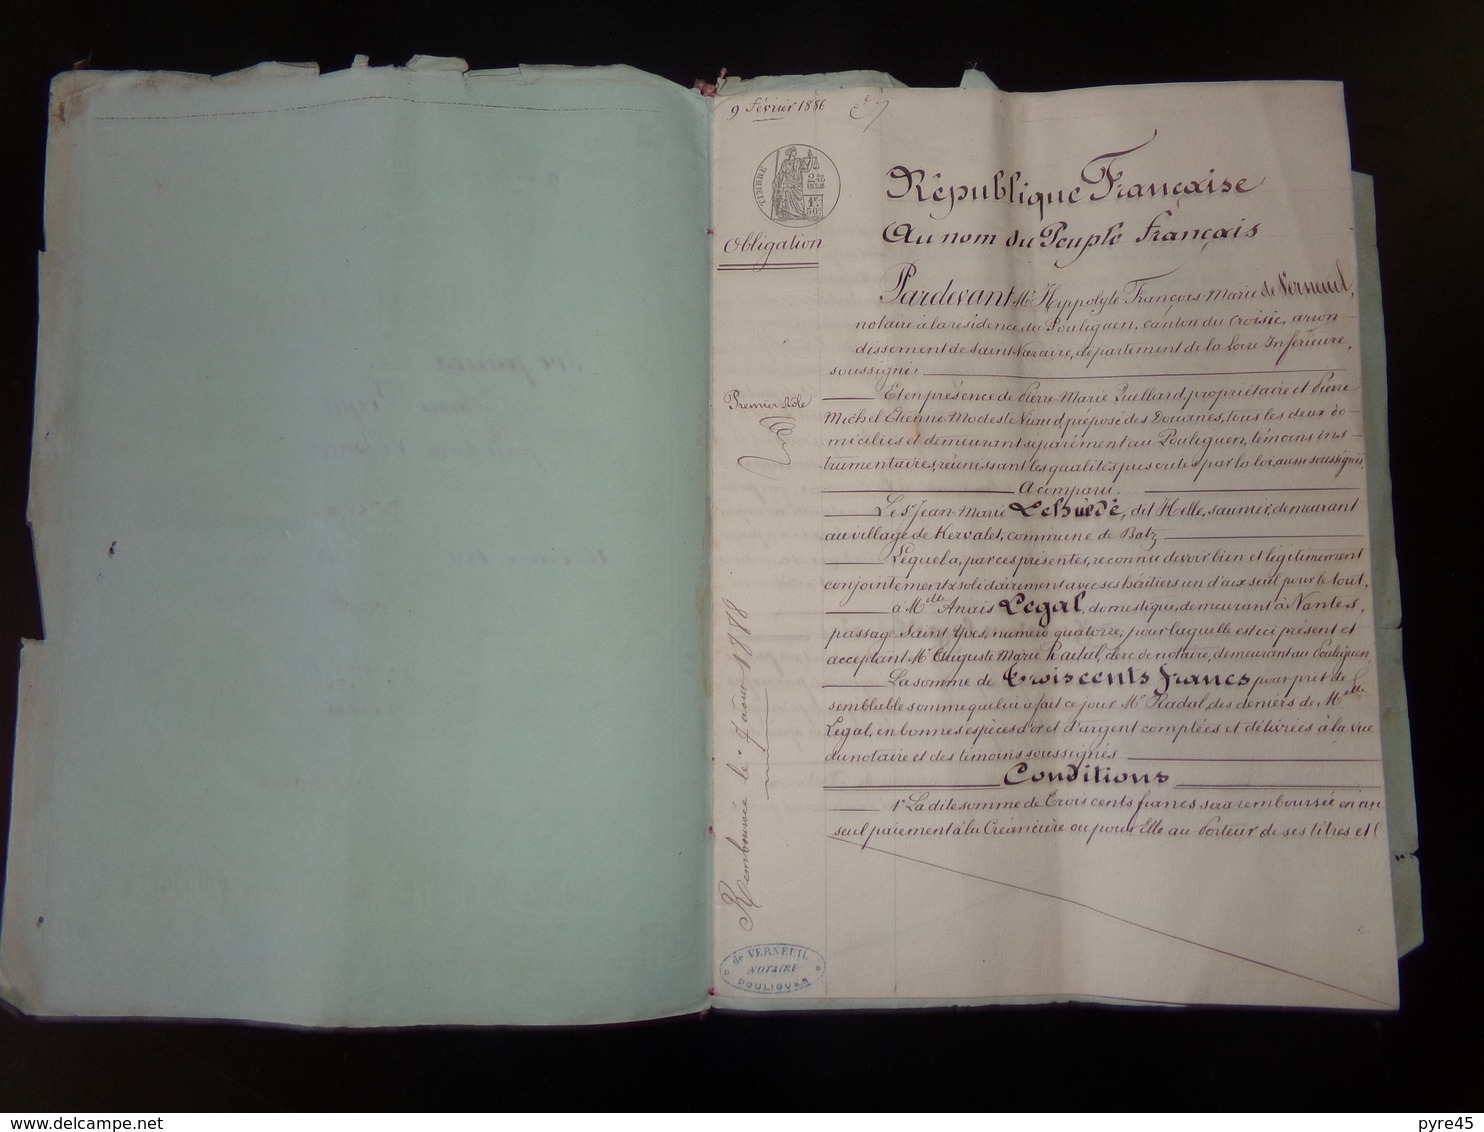 9 Février 1886
TIMBRE
2/10
EN SUS
1F
50c
Obligation
République Française
Au nom du Peuple Français
Pardevant Me Hippolyte François-Marie de Verneuil,
notaire à la résidence du Pouliguen, canton du Croisic, arron
dissement de Saint-Nazaire, département de la Loire Inférieure,
soussigné,
Et en présence de Pierre Marie Quellard, propriétaire et Pierre
Premier Rôle
Michel Etienne Modeste Viaud préposé des Douanes, tous les deux do-
miciliés et demeurant séparément au Pouliguen, témoins ins-
trumentaires, réunissant les qualités prescrites par la loi, aussi soussignés,
A comparu.
Le Sr Jean-Marie Lehuédé, dit Helle, saunier, demeurant
au village de Kervalet, commune de Batz
Lequel a, par ces présentes, reconnu devoir bien et légitimement
conjointement & solidairement avec ses héritiers un d'eux seul pour le tout,
à Melle Anaïs Legal, domestique, demeurant à Nantes,
passage Saint Yves, numéro quatorze, pour laquelle est ici présent et
acceptant Mr Auguste Marie Radal, clerc de notaire, demeurant au Pouliguen
La somme de Trois cents francs pour prêt de
semblable somme que lui a fait ce jour Mr Radal, des deniers de Melle
Legal, en bonnes espèces d'or et d'argent comptées et délivrées à la vue
du notaire et des témoins soussignés
Conditions
1° La dite somme de Trois cents francs sera remboursée en un
seul paiement à la Créancière ou pour Elle au Porteur de ses titres et
Remboursée le 7 août 1888
de VERNEUIL
NOTAIRE
POULIGUEN
delcampe.net
pyre45